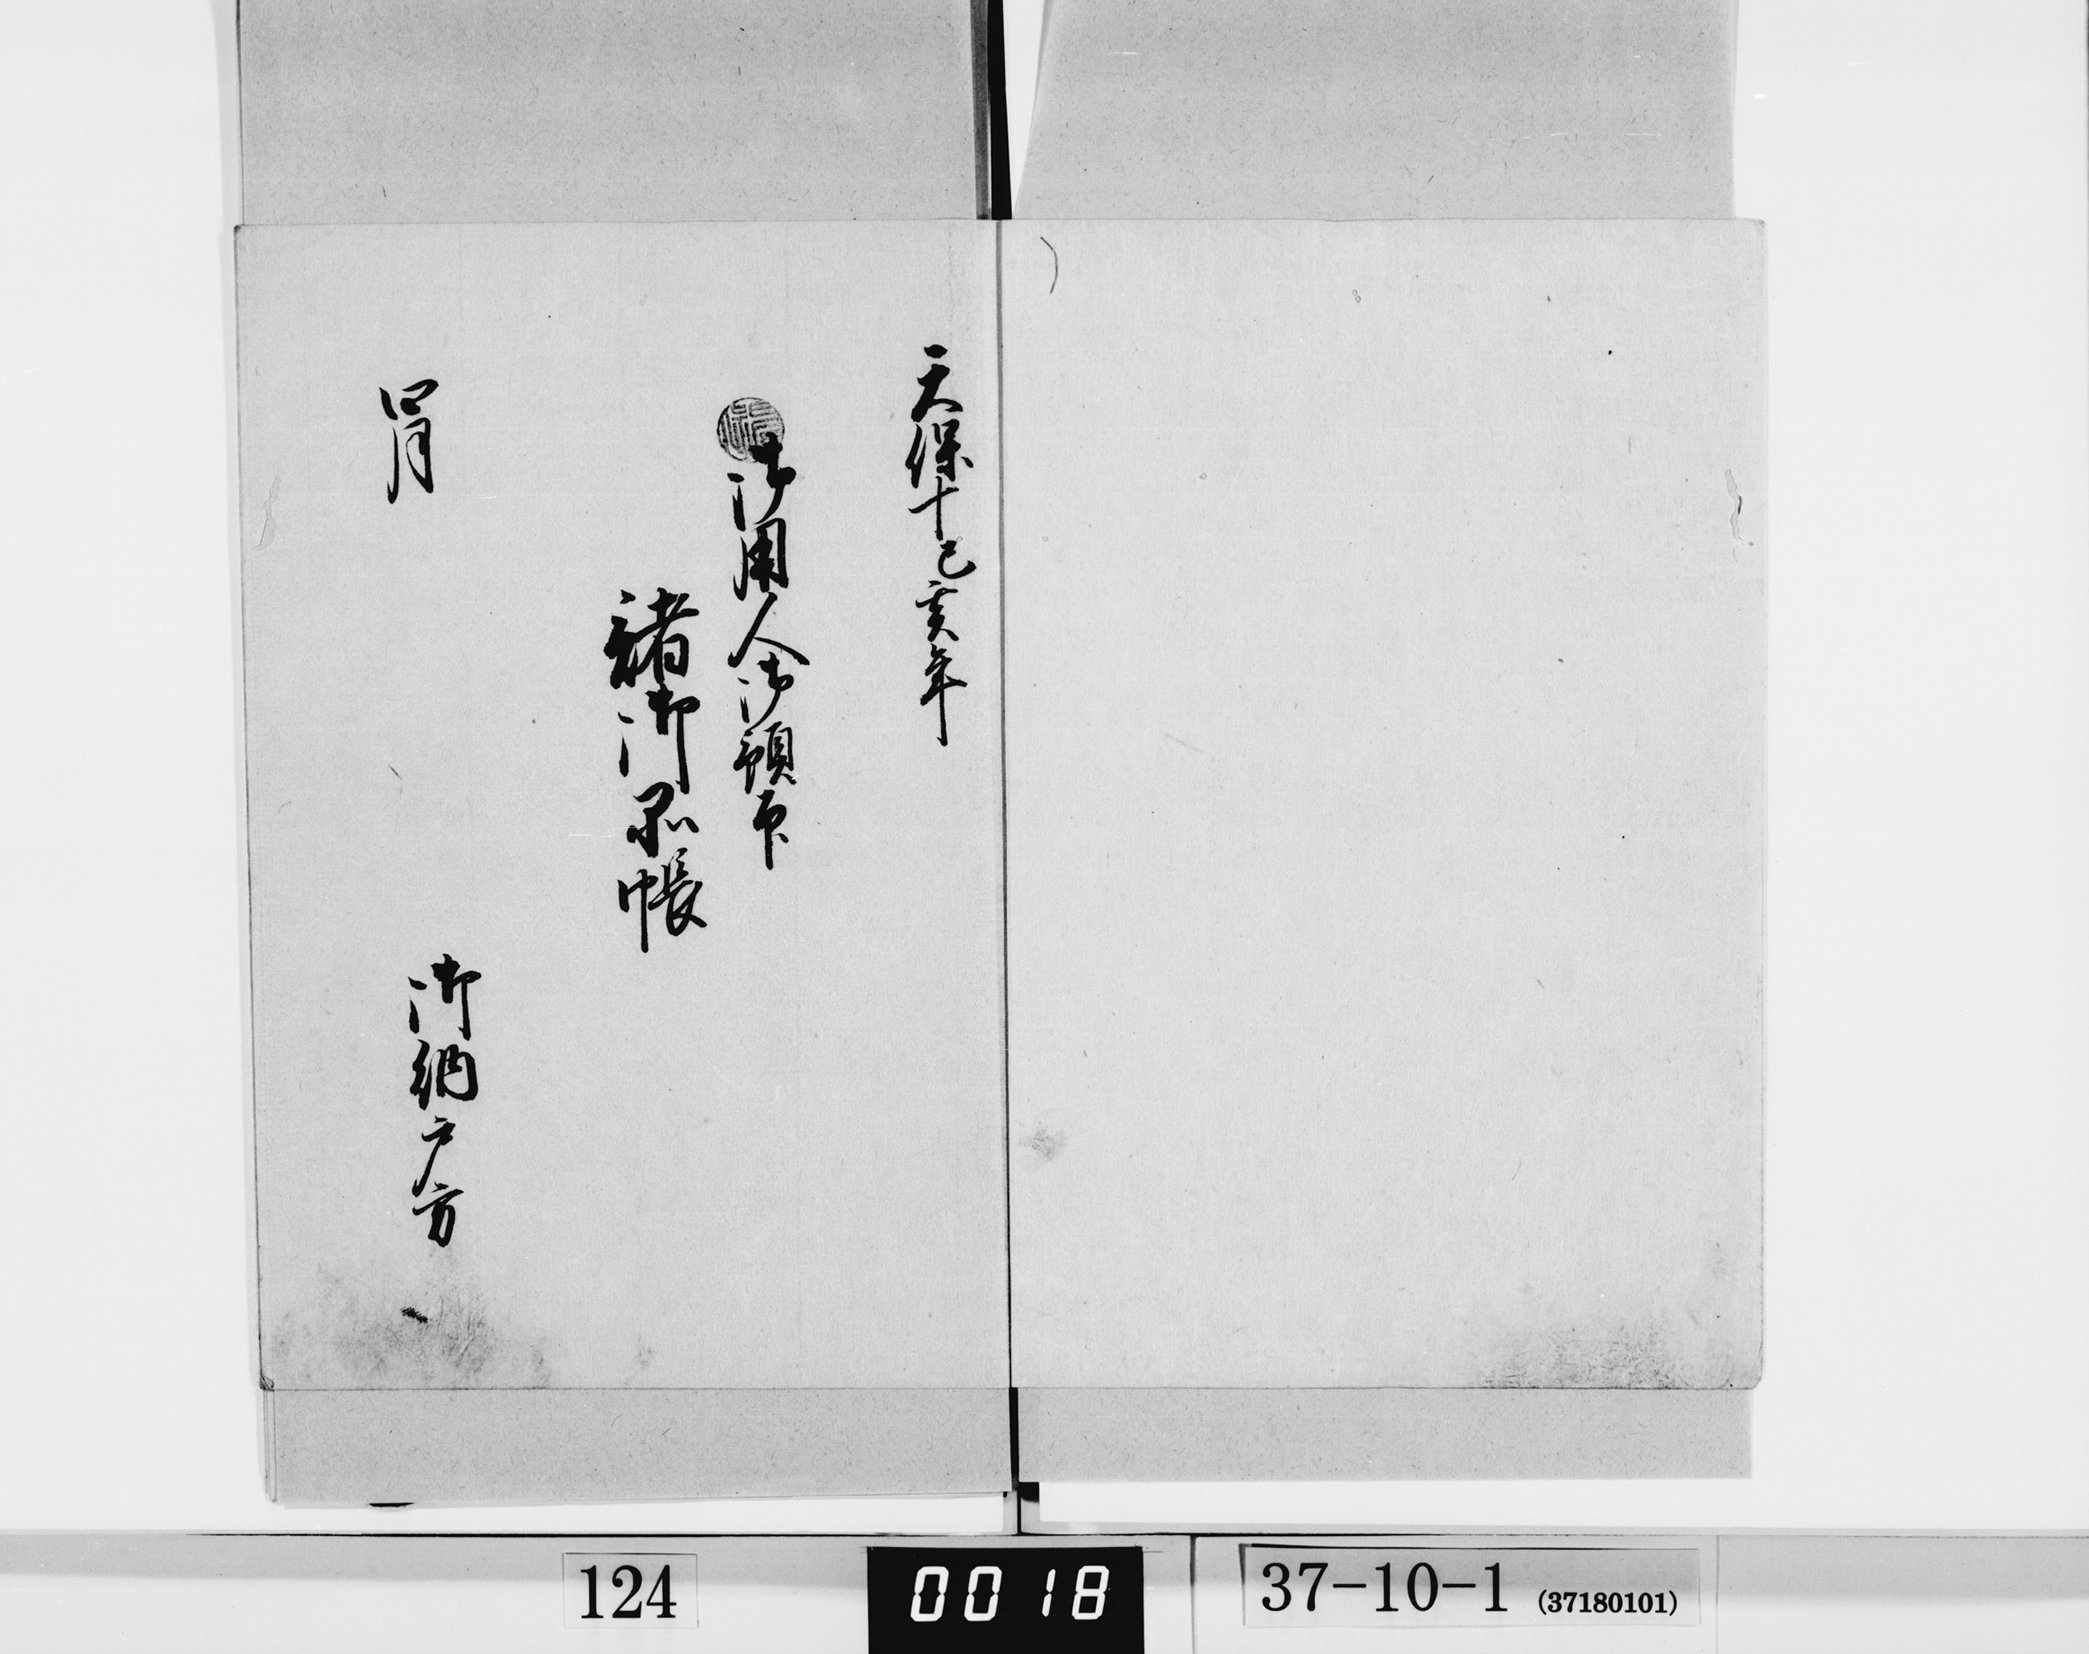 天保十己亥年
御用人御預印
諸御品帳
四月
御納戸方
124
0018
37-10-1 (37180101)